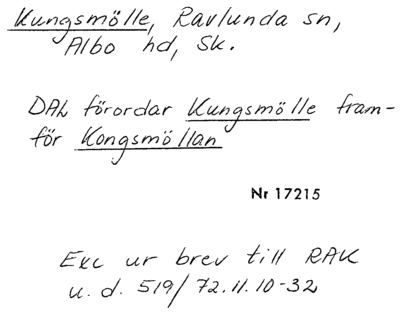 Kungsmölle, Ravlunda sn,
Albo hd, Sk.
DAL förordar Kungsmölle fram-
för Kongsmöllan
Nr 17215
Exc ur brev till RAK
u. d. 519/72.11.10-32